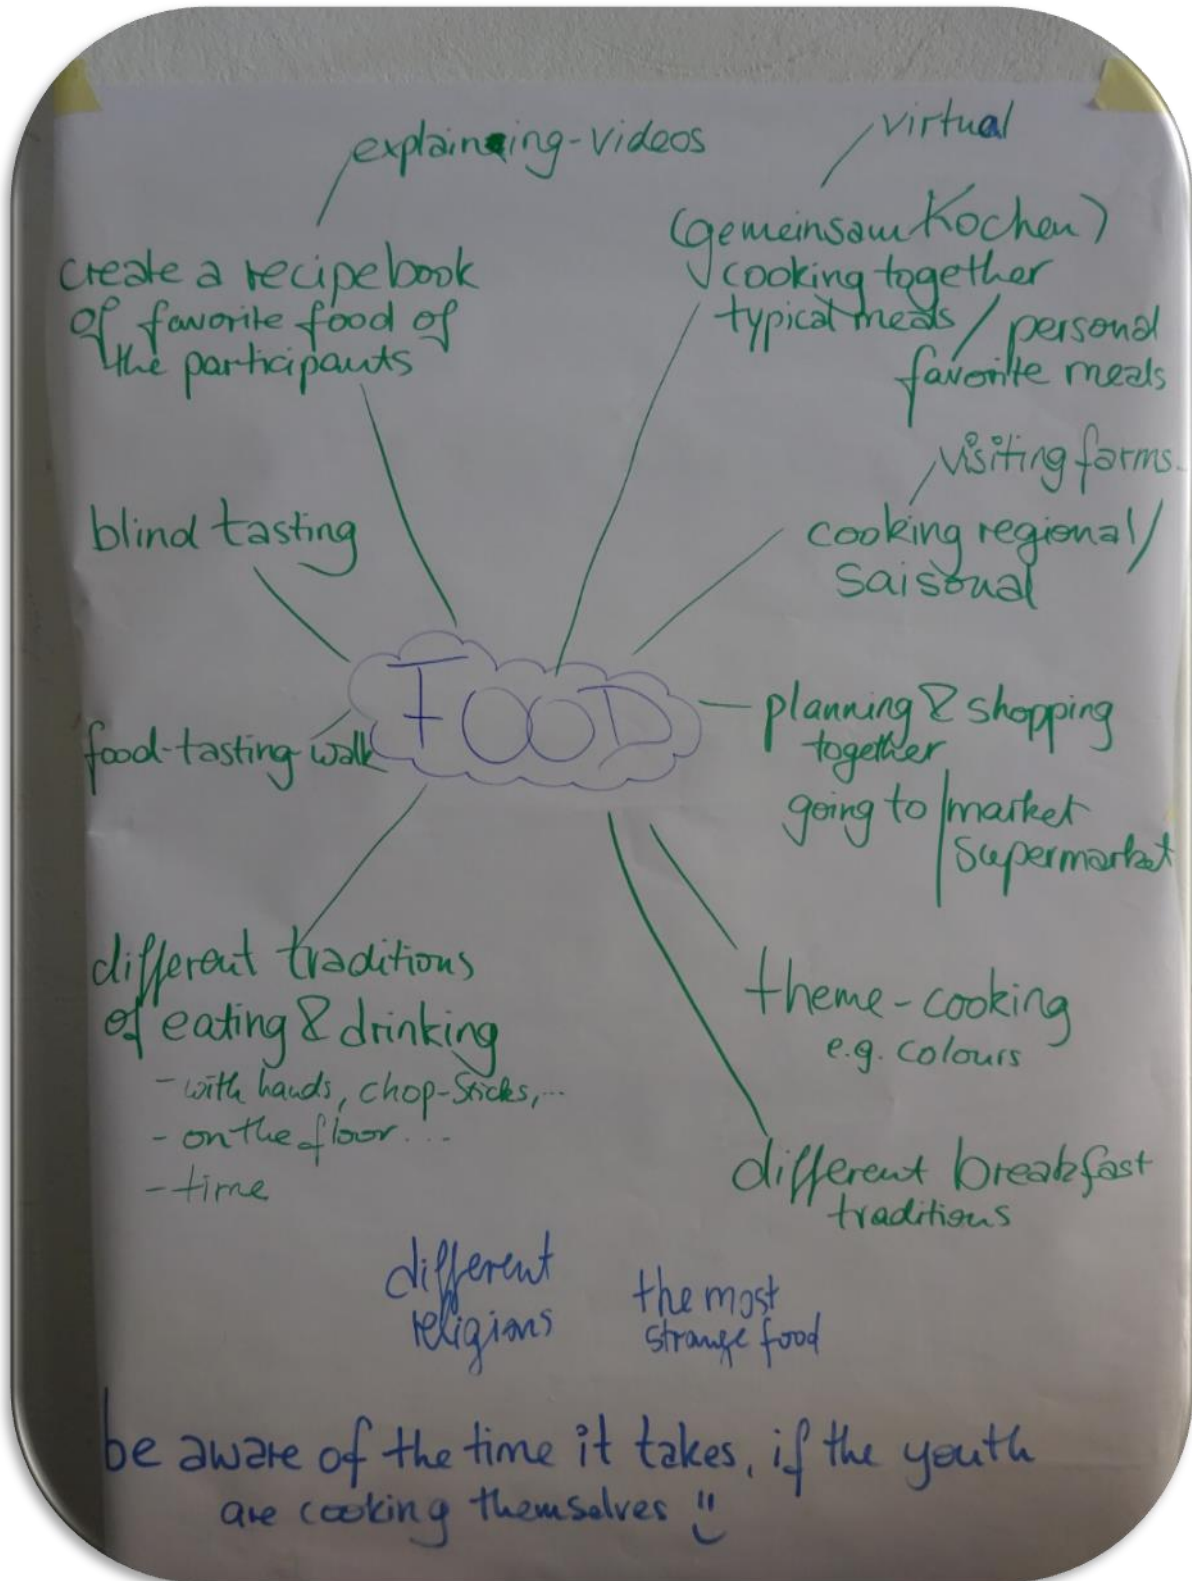 explaining-videos
create a recipebook
of favorite food of
the participants
virtual
(gemeinsam Kochen)
cooking together
typical meals / personal
favorite meals
visiting farms
cooking regional/
saisonal
blind tasting
FOOD
food-tasting-walk
planning & shopping
together
going to / market
supermarket
different traditions
of eating & drinking
- with hands, chop-sticks, ...
- on the floor ...
- time
theme-cooking
e.g. colours
different breakfast
traditions
different
religions
the most
strange food
be aware of the time it takes, if the youth
are cooking themselves